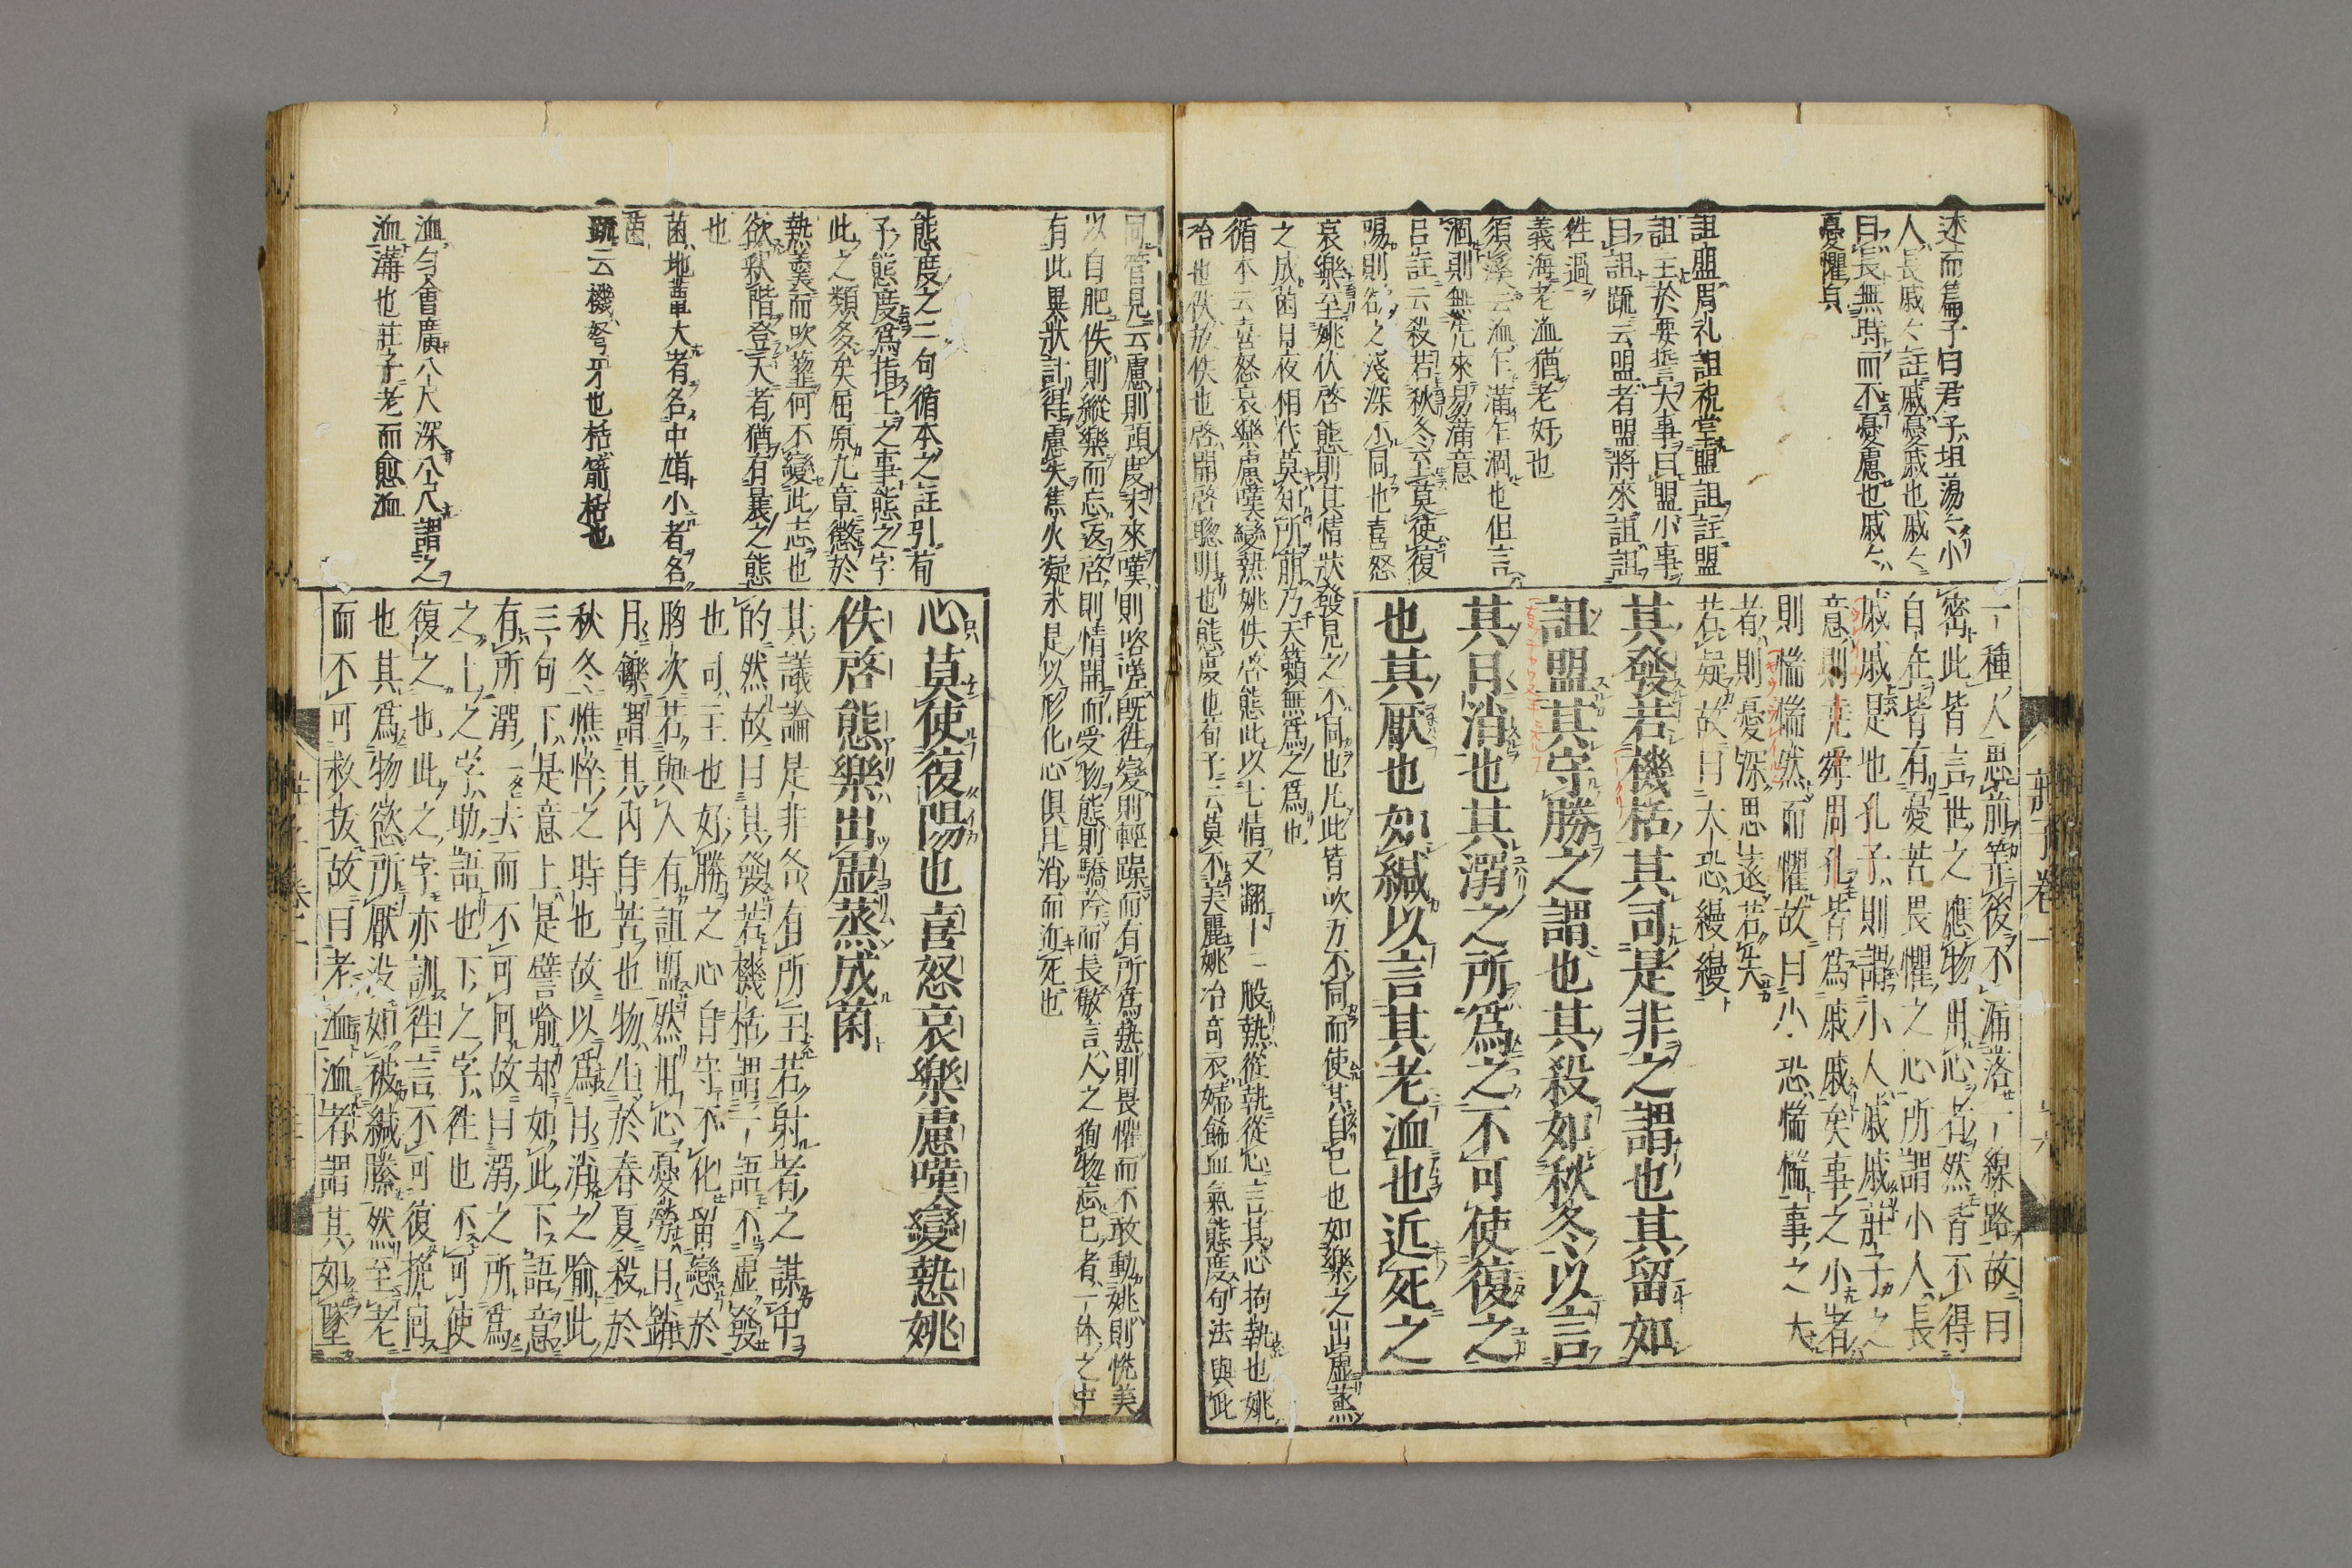 述而篇子曰君子坦蕩々小
人長戚々註戚憂戚也戚々
曰長無時而不憂慮也戚々
憂懼皃
詛盟周礼詛祝掌盟詛註盟
詛主於要誓大事曰盟小事
曰詛疏云盟者盟將來詛詛
徃過
義海老洫猶老奸也
須溪云洫乍滿乍涸也但言
涸則無先來易滿意
呂註云殺若秋冬至莫使復
陽則欲之淺深不同也喜怒
哀樂至姚佚啓態則其情狀發見之不同也凡此皆吹万不同而使其自己也如樂之出虚蒸
之成菌日夜相代莫知所萠乃天籟無爲之爲也
循本云喜怒哀樂慮嘆變熱姚佚啓態此以七情又翻十二般熱從執從心言其心拘執也姚
冶也佚放佚也啓開啓聰明也態態度也荀子云莫不美麗姚冶奇衣婦飾血氣態度句法與此
一種人思前筭後不漏落一線路故曰
密此皆言世之應物用心者然皆不得
自在皆有憂苦畏懼之心所謂小人長
戚戚是也孔子則謂小人戚戚莊子之
意則堯舜周孔皆爲戚戚矣事之小者
則惴惴然而懼故曰小恐惴惴事之大
者則憂深思遠若失
若疑故曰大恐縵縵
其發若機栝其司是非之謂也其留如
詛盟其守勝之謂也其殺如秋冬以言
其日消也其溺之所爲之不可使復之
也其厭也如緘以言其老洫也近死之
莊子卷一
同管見云慮則預度未來嘆則咨嗟既徃變則輕躁而有所爲熱則畏懼而不敢動姚則恌美
以自肥佚則縱樂而忘返啓則情開而受物態則驕矜而長敏言人之狥物忘己者一体之中
有此異狀計得慮失焦火凝氷是以形化心俱且消而洫死也
態度之二句循本之註引荀
子態度爲指上之事態之字
此之類多矣屈原九章懲於
熱羹而吹虀何不變此志也
欲釋階登天者猶有曩之態
也
菌地蕈大者名中馗小者名
菌
疏云機弩牙也栝箭栝也
洫匀會廣八尺深八尺謂之
洫溝也莊子老而愈洫
心莫使復陽也喜怒哀樂慮嘆變慹姚
佚啓態樂出虚蒸成菌
其議論是非各有所主若射者之謀中
的然故曰其發若機栝謂一語不虚發
也司主也好勝之心自守不化留戀於
胸次若與人有詛盟然用心憂勞日銷
月鑠謂其内自苦也物生於春夏殺於
秋冬憔悴之時也故以爲日消之喻此
三句下是意上是譬喻却如此下語意
有所溺一終去而不可囘故曰溺之所爲
之上之字助語也下之字徃也不可使
復之也此之字亦訓徃言不可復挽囘
也其爲物慾所厭没如被緘縢然至老
而不可救拔故曰老洫洫者謂其如墜